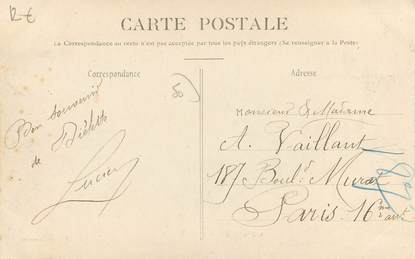 12€
CARTE POSTALE
La Correspondance au recto n'est pas acceptée par tous les pays étrangers (Se renseigner à la Poste)
Correspondance
Adresse
80
Bon souvenir
de
Lucien
Monsieur & Madame
A. Vaillant
187 Boul.d Murat
Paris. 16me arrt
187